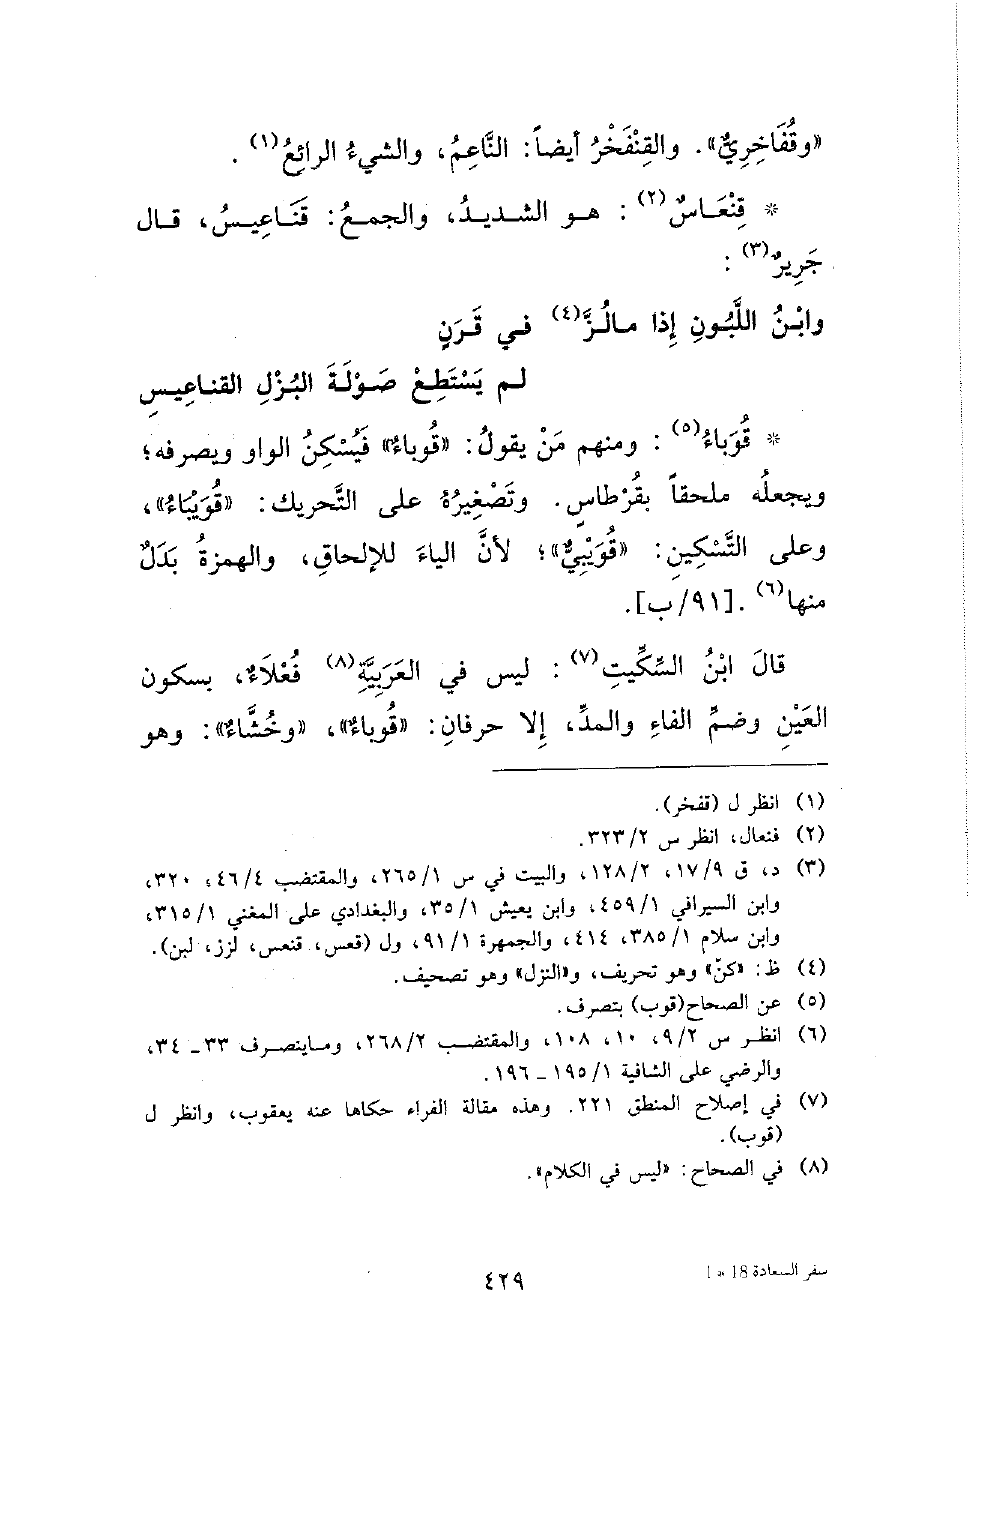 «وقُفَاخِرِيٌّ». والقِنْفَخْرُ أيضاً: النَّاعِمُ، والشيءُ الرائِعُ(١) .
* قِنْعَـاسٌ(٢) : هـو الشـديـدُ، والجمـعُ: قَنَـاعِيـسُ، قـال
جَرِيرٌ(٣) :
وابْـنُ اللَّبُـونِ إِذا مـالُـزَّ(٤) فـي قَـرَنٍ
لـم يَسْتَطِـعْ صَـوْلَـةَ البُـزْلِ القنـاعِيـسِ
* قُوَباءُ(٥) : ومنهم مَنْ يقولُ: «قُوباءٌ» فَيُسْكِنُ الواو ويصرفه؛
ويجعلُه ملحقاً بقُرْطاسٍ. وتَصْغِيرُهُ على التَّحريك: «قُوَيْبَاءُ»،
وعلى التَّسْكِينِ: «قُوَيْبِيٌّ»؛ لأنَّ الياءَ للإلحاقِ، والهمزةُ بَدَلٌ
منها(٦) .[٩١/ب].
قالَ ابْنُ السِّكِّيتِ(٧) : ليس في العَرَبِيَّةِ(٨) فُعْلَاءُ، بسكون
العَيْنِ وضمِّ الفاءِ والمدِّ، إلا حرفانِ: «قُوباءٌ»، «وخُشَّاءٌ»: وهو
(١) انظر ل (قفخر).
(٢) فنعال، انظر س ٣٢٣/٢.
(٣) د، ق ١٧/٩، ١٢٨/٢، والبيت في س ٢٦٥/١، والمقتضب ٤٦/٤، ٣٢٠،
وابن السيرافي ٤٥٩/١، وابن يعيش ٣٥/١، والبغدادي على المغني ٣١٥/١،
وابن سلام ٣٨٥/١، ٤١٤، والجمهرة ٩١/١، ول (قعس، قنعس، لزز، لبن).
(٤) ظ: «كنّ» وهو تحريف، و«النزل» وهو تصحيف.
(٥) عن الصحاح(قوب) بتصرف.
(٦) انظـر س ٩/٢، ١٠، ١٠٨، والمقتضـب ٢٦٨/٢، ومـاينصـرف ٣٣ـ ٣٤،
والرضي على الشافية ١٩٥/١ ـ ١٩٦.
(٧) في إصلاح المنطق ٢٢١. وهذه مقالة الفراء حكاها عنه يعقوب، وانظر ل
(قوب).
(٨) في الصحاح: «ليس في الكلام».
سفر السعادة 18 * 1
٤٢٩